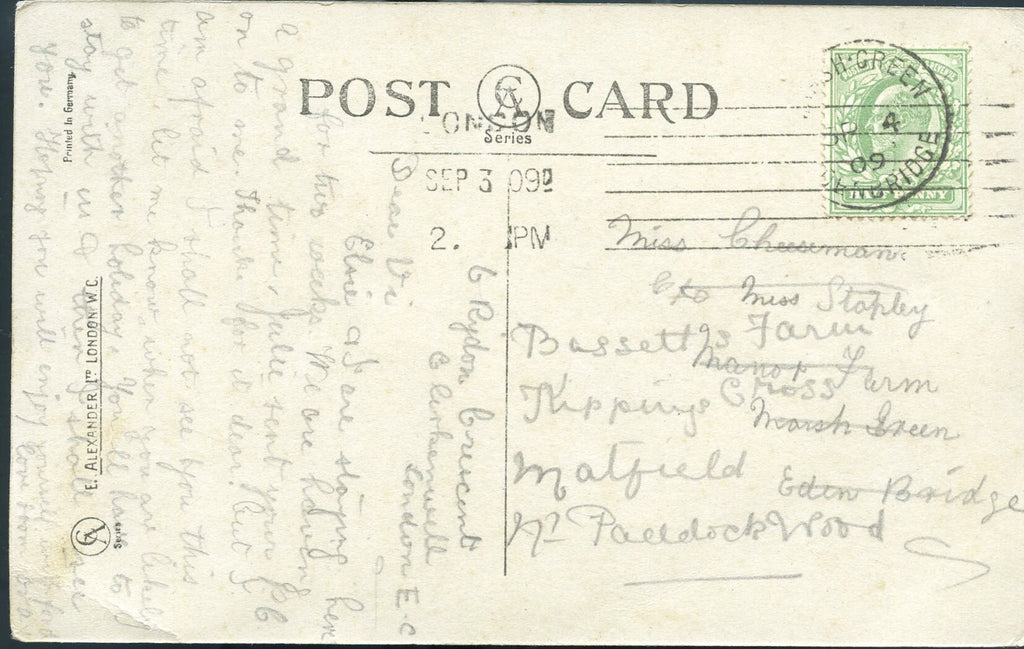 POST CARD
CA
Series
LONDON
SEP 3 09
2. PM
SH·GREEN
4
09
ENBRIDGE
PENNY
Miss Cheeseman
C/o Miss Stapley
Bassetts Farm
Manor Farm
Kippings Cross
Marsh Green
Matfield
Eden Bridge
Nr Paddock Wood
6 Rydon Crescent
Clerkenwell
London E.C
Dear Vi
Elsie & I are staying here
for two weeks. We are having
a grand time, sent your PC
on to me. Thanks for it dear. But I
am afraid I shall not see you this
time. let me know when you are likely
to get another holiday. You'll have to
stay with us & then I shall see
you. Hoping you will enjoy yourself
Love from
Printed in Germany.
E. ALEXANDER LTD LONDON. W.C.
CA
Series